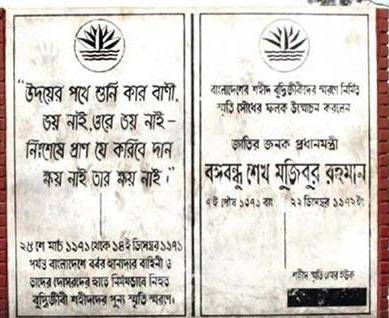 "উদয়ের পথে শুনি কার বাণী,
ভয় নাই ওরে ভয় নাই –
নিঃশেষে প্রাণ যে করিবে দান
ক্ষয় নাই তার ক্ষয় নাই।"
২৫ শে মার্চ ১৯৭১ থেকে ১৪ই ডিসেম্বর ১৯৭১
পর্যন্ত বাংলাদেশে বর্বর হানাদার বাহিনী ও
তাদের দোসরদের হাতে নির্মমভাবে নিহত
বুদ্ধিজীবী শহীদদের পুন্য স্মৃতি স্মরণে।
বাংলাদেশের শহীদ বুদ্ধিজীবীদের স্মরণে নির্মিত
স্মৃতি সৌধের ফলক উন্মোচন করলেন
জাতির জনক প্রধানমন্ত্রী
বঙ্গবন্ধু শেখ মুজিবুর রহমান
৭ই পৌষ ১৩৭৯ বাং ২২ ডিসেম্বর ১৯৭২ ইং
শহীদ স্মৃতি অমর হউক